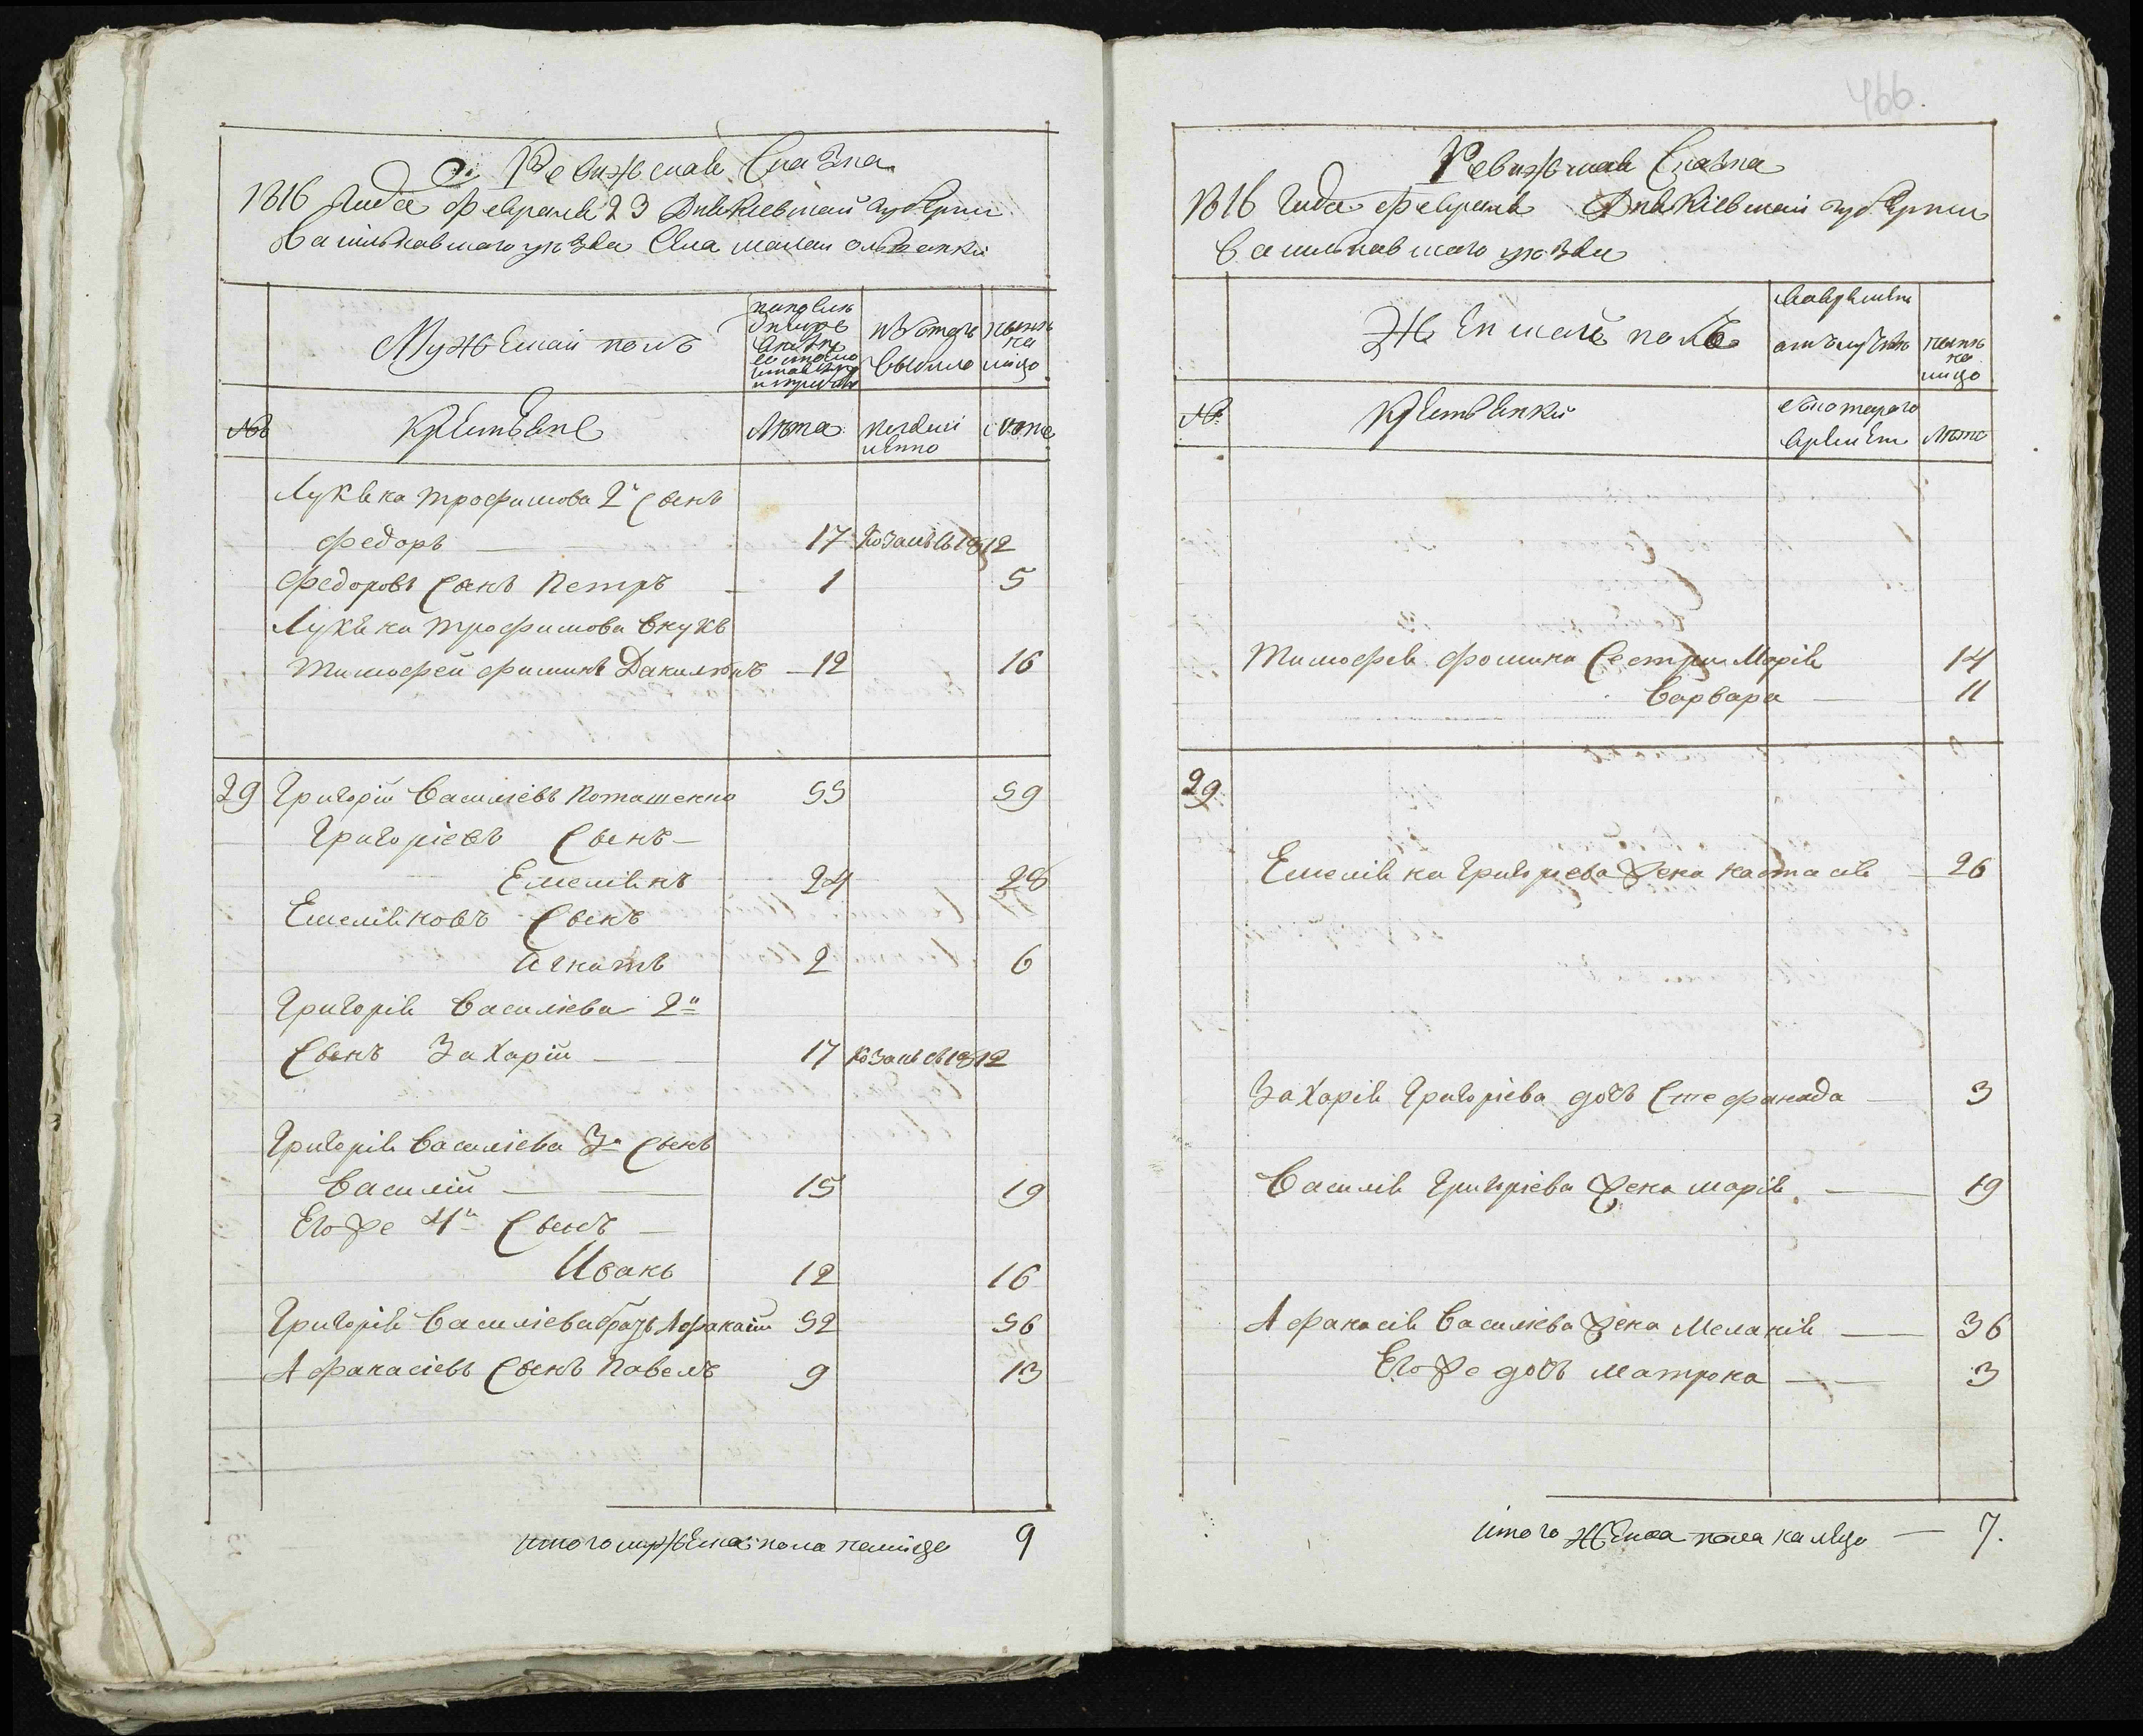 Ревижская Сказка
1816 Года Февраля 23 Дня Киевской губернии
Василькавскаго уезда Села малои ольшанки
Мужескаи полъ
изъ того числа выбыло
ныне на лицо
№
Крестьяне
Лета
Лета
Лукьяна трофимова 2й Сынъ
Федоръ — 17 Козакъ съ 1812
Федоровъ Сынъ Петръ — 1 5
Лукьяна Трофимова внукъ
Тимофей Фоминъ Данилюкъ — 12 16
29 Григорій Василіевъ Поташенко 55 59
Григоріевъ Сынъ —
Емеліянъ 24 28
Емеліяновъ Сынъ
Игнатъ 2 6
Григорія Василіева 2й
Сынъ Захарій — 17 Козакъ съ 1812
Григорія Василіева 3й Сынъ
Василій — 15 19
Его же 4й Сынъ —
Иванъ 12 16
Григорія Василіева братъ Афанасій 52 56
Афанасіевъ Сынъ Павелъ 9 13
итого мужеска пола налице 9
466.
Ревижская Сказка
1816 Года Февраля Дня Киевскои губернии
Василькавскаго уезда
Женскои полъ
ныне на лицо
№
Крестьянки
Лета
Тимофея Фомина Сестры Марія 14
Варвара — 11
29
Емеліяна Григоріева жена Настасія — 26
Захарія Григоріева дочь Стефанида — 3
Василія Григоріева жена марія — 19
Афанасія Василіева жена Меланія — 36
Его же дочь матрона — 3
итого женска пола на лицо — 7.